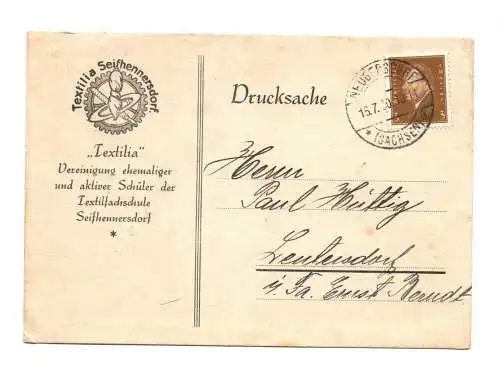 Textilia Seifhennersdorf.
„Textilia"
Vereinigung ehemaliger
und aktiver Schüler der
Textilfachschule
Seifhennersdorf
*
Drucksache
15.7.30
* (SACHSEN)
3
Herrn
Paul Hüttig
Leutersdorf
i. Fa. Ernst Berndt